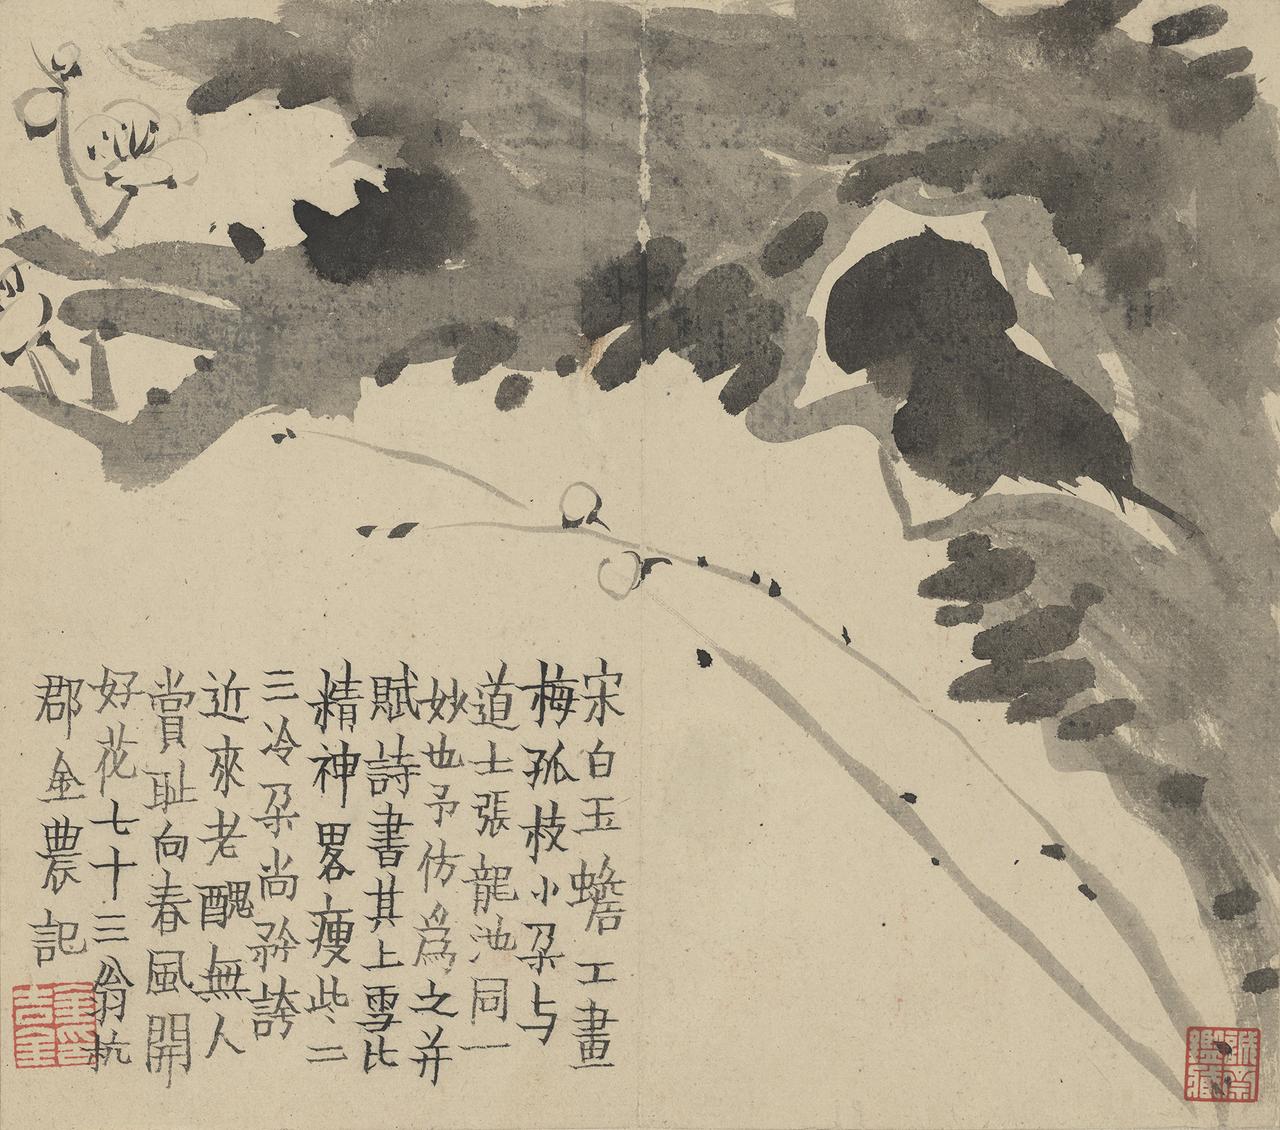 宋白玉蟾工畫
梅孤枝小朶与
道士張龍池同一
妙也予仿爲之并
賦詩書其上雪比
精神畧瘦些二
三冷朶尚矜誇
近來老醜無人
賞恥向春風開
好花七十三翁杭
郡金農記